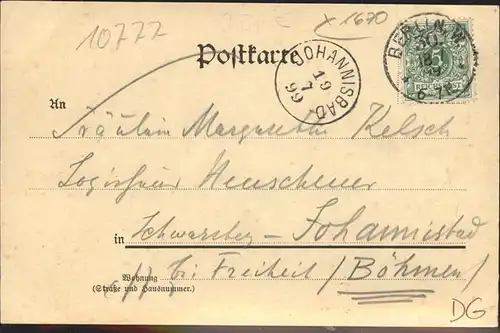 10777
x 1670
Postkarte
JOHANNISBAD
19
7
99
BERLIN, W.
18
6-7N
5
REICHSPOST
An
Fräulein Margarethe Kelsch
Logishaus Neuscheuer
in Schwarzberg - Johannisbad
Wohnung
(Straße und Hausnummer.)
bei Freiheit / Böhmen /
DG